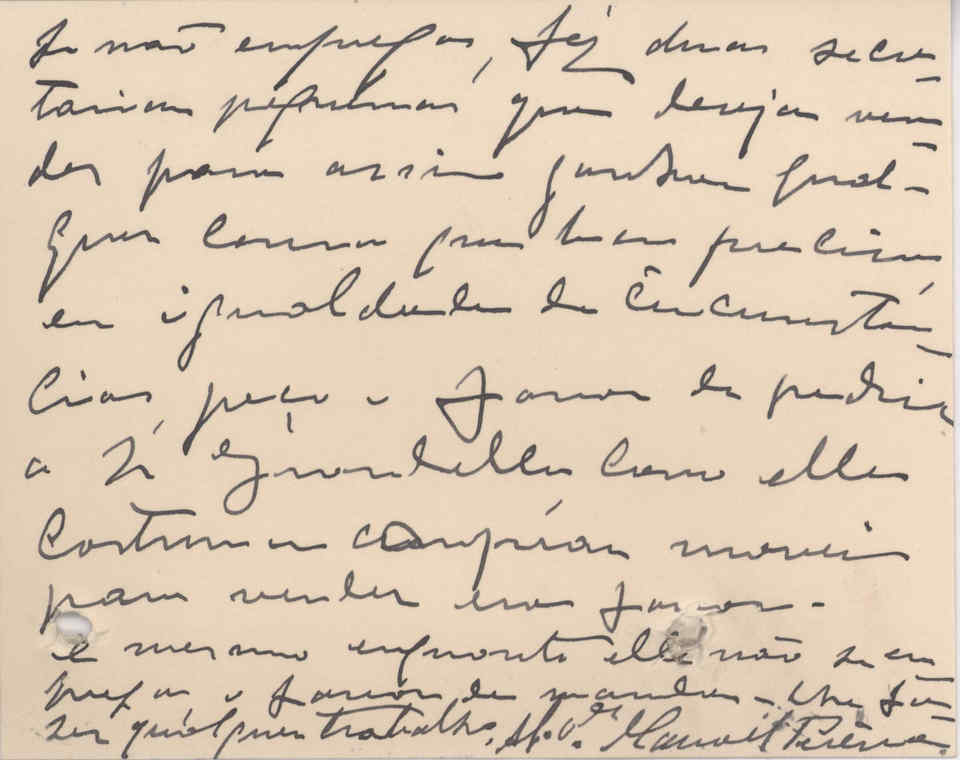 se não empregar, fez duas secre-
tarias pequenas que deseja ven-
der para assim ganhar qual-
quer cousa que bem precisa,
em igualdade de circumstan-
cias, peço o favor de pedir
a Sr. Grandella como elle
costuma comprar moveis
para vender era favor -
e mesmo enquanto elle não se em
prega, o favor de mandar-lhe fa-
zer qualquer trabalho. Manoel Pereira.